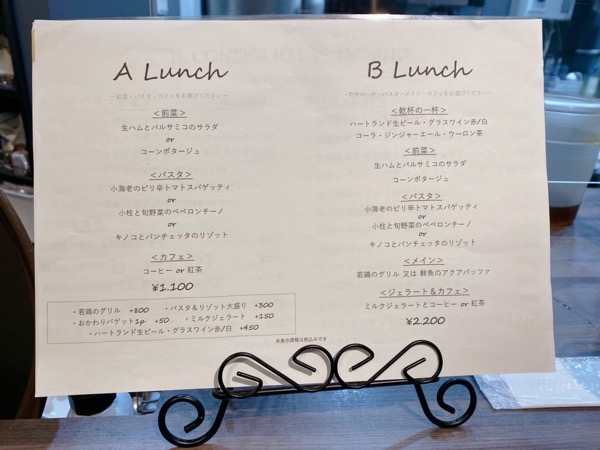 A Lunch
～前菜・パスタ・カフェをお選びください～
＜前菜＞
生ハムとバルサミコのサラダ
or
コーンポタージュ
＜パスタ＞
小海老のピリ辛トマトスパゲッティ
or
小柱と旬野菜のペペロンチーノ
or
キノコとパンチェッタのリゾット
＜カフェ＞
コーヒー or 紅茶
¥1.100
・若鶏のグリル +800 ・パスタ＆リゾット大盛り +300
・おかわりバゲット1p +50 ・ミルクジェラート +150
・ハートランド生ビール・グラスワイン赤/白 +450
B Lunch
～乾杯の一杯・パスタ・メイン・カフェをお選びください～
＜乾杯の一杯＞
ハートランド生ビール・グラスワイン赤/白
コーラ・ジンジャーエール・ウーロン茶
＜前菜＞
生ハムとバルサミコのサラダ
コーンポタージュ
＜パスタ＞
小海老のピリ辛トマトスパゲッティ
or
小柱と旬野菜のペペロンチーノ
or
キノコとパンチェッタのリゾット
＜メイン＞
若鶏のグリル 又は 鮮魚のアクアパッツァ
＜ジェラート＆カフェ＞
ミルクジェラートとコーヒー or 紅茶
¥2.200
※表示価格は税込みです